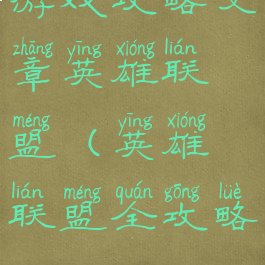 游戏攻略文
zhāng yīng xióng lián
章英雄联
méng yīng xióng
盟(英雄
lián méng quán gōng lüè
联盟全攻略